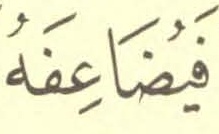 فَيُضَاعِفَهُ